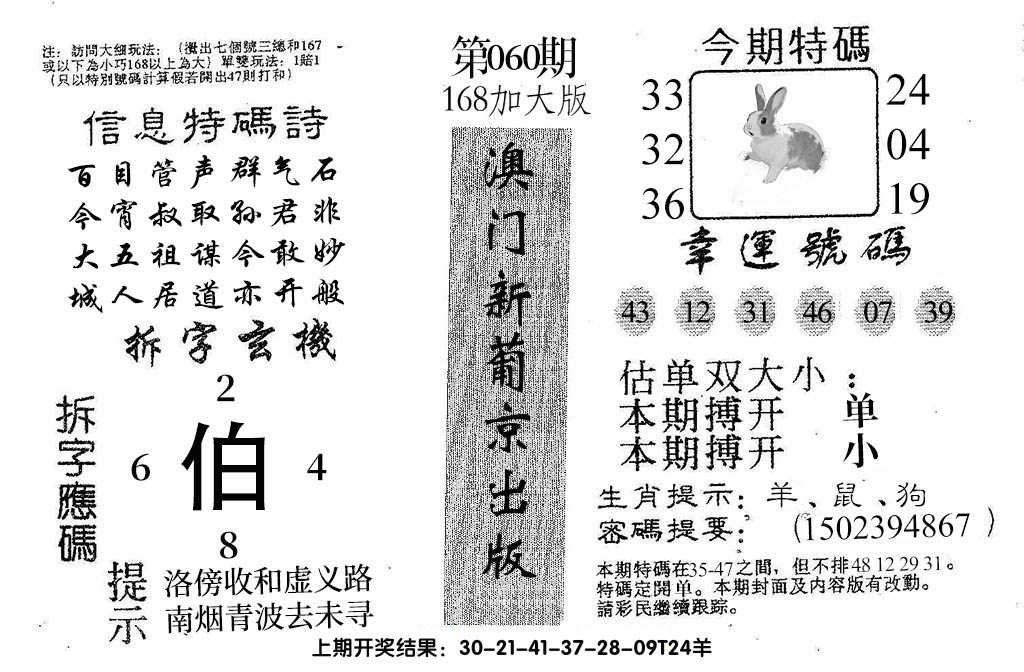 注：訪問大细玩法：（攪出七個號三總和167
或以下為小巧168以上為大）單雙玩法：1賠1
（只以特別號碼計算假若開出47則打和）
信息特碼詩
百目管声群气石
今宵叔取孙君非
大五祖谋今敢妙
城人居道亦开般
拆字玄機
拆字應碼
2
6 伯 4
8
提示
洛傍收和虚义路
南烟青波去未寻
第060期
168加大版
澳门新葡京出版
今期特碼
33 24
32 04
36 19
幸運號碼
43 12 31 46 07 39
估单双大小：
本期搏开 单
本期搏开 小
生肖提示：羊、鼠、狗
密碼提要：（1502394867）
本期特碼在35-47之間，但不排48 12 29 31。
特碼定開单。本期封面及内容版有改動。
請彩民繼續跟踪。
上期开奖结果：30-21-41-37-28-09T24羊